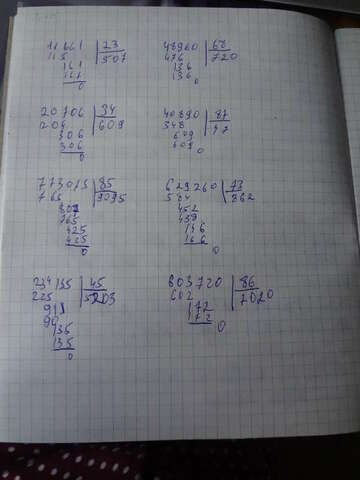 11661 | 23
115 | 507
161
161
0
48960 | 68
476 | 720
136
136
0
20706 | 34
204 | 609
306
306
0
40890 | 87
348
609
0
773075 | 85
765 | 9095
765
425
425
0
629260 | 73
584 | 862
452
146
146
0
234135 | 45
225 | 5203
91
90
135
135
0
803720 | 86
602 | 7020
172
172
0